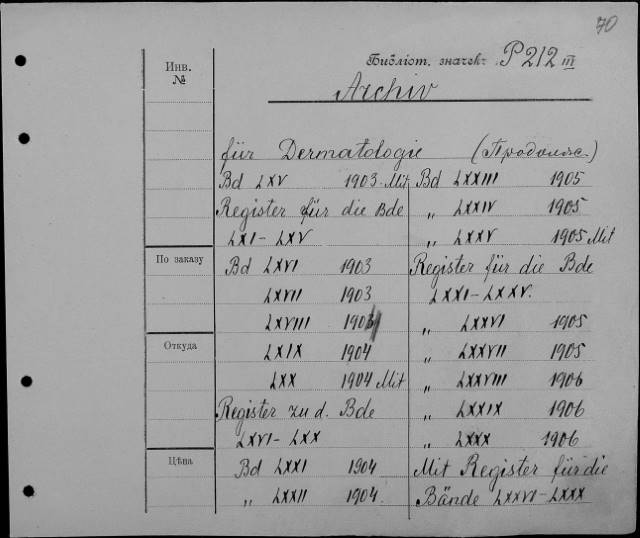 70
Инв.
№
Бібліот. значекъ P 212 III
Archiv
für Dermatologie (Продолж.)
Bd LXV 1903 Mit
Register für die Bde
LXI-LXV
По заказу
Bd LXVI 1903
LXVII 1903
LXVIII 1903
Откуда
LXIX 1904
LXX 1904 Mit
Register zu d. Bde
LXVI-LXX
Цѣна
Bd LXXI 1904
„ LXXII 1904
Bd LXXIII 1905
„ LXXIV 1905
„ LXXV 1905 Mit
Register für die Bde
LXXI-LXXV.
„ LXXVI 1905
„ LXXVII 1905
„ LXXVIII 1906
„ LXXIX 1906
„ LXXX 1906
Mit Register für die
Bände LXXVI-LXXX